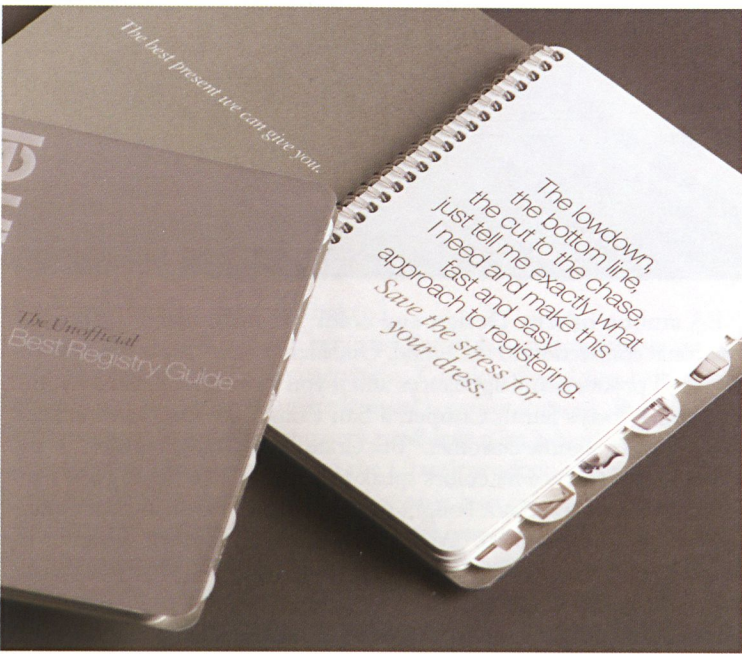 The best present we can give you.
The Unofficial
Best Registry Guide
The lowdown,
the bottom line,
the cut to the chase,
just tell me exactly what
I need and make this
fast and easy
approach to registering.
Save the stress for
your dress.